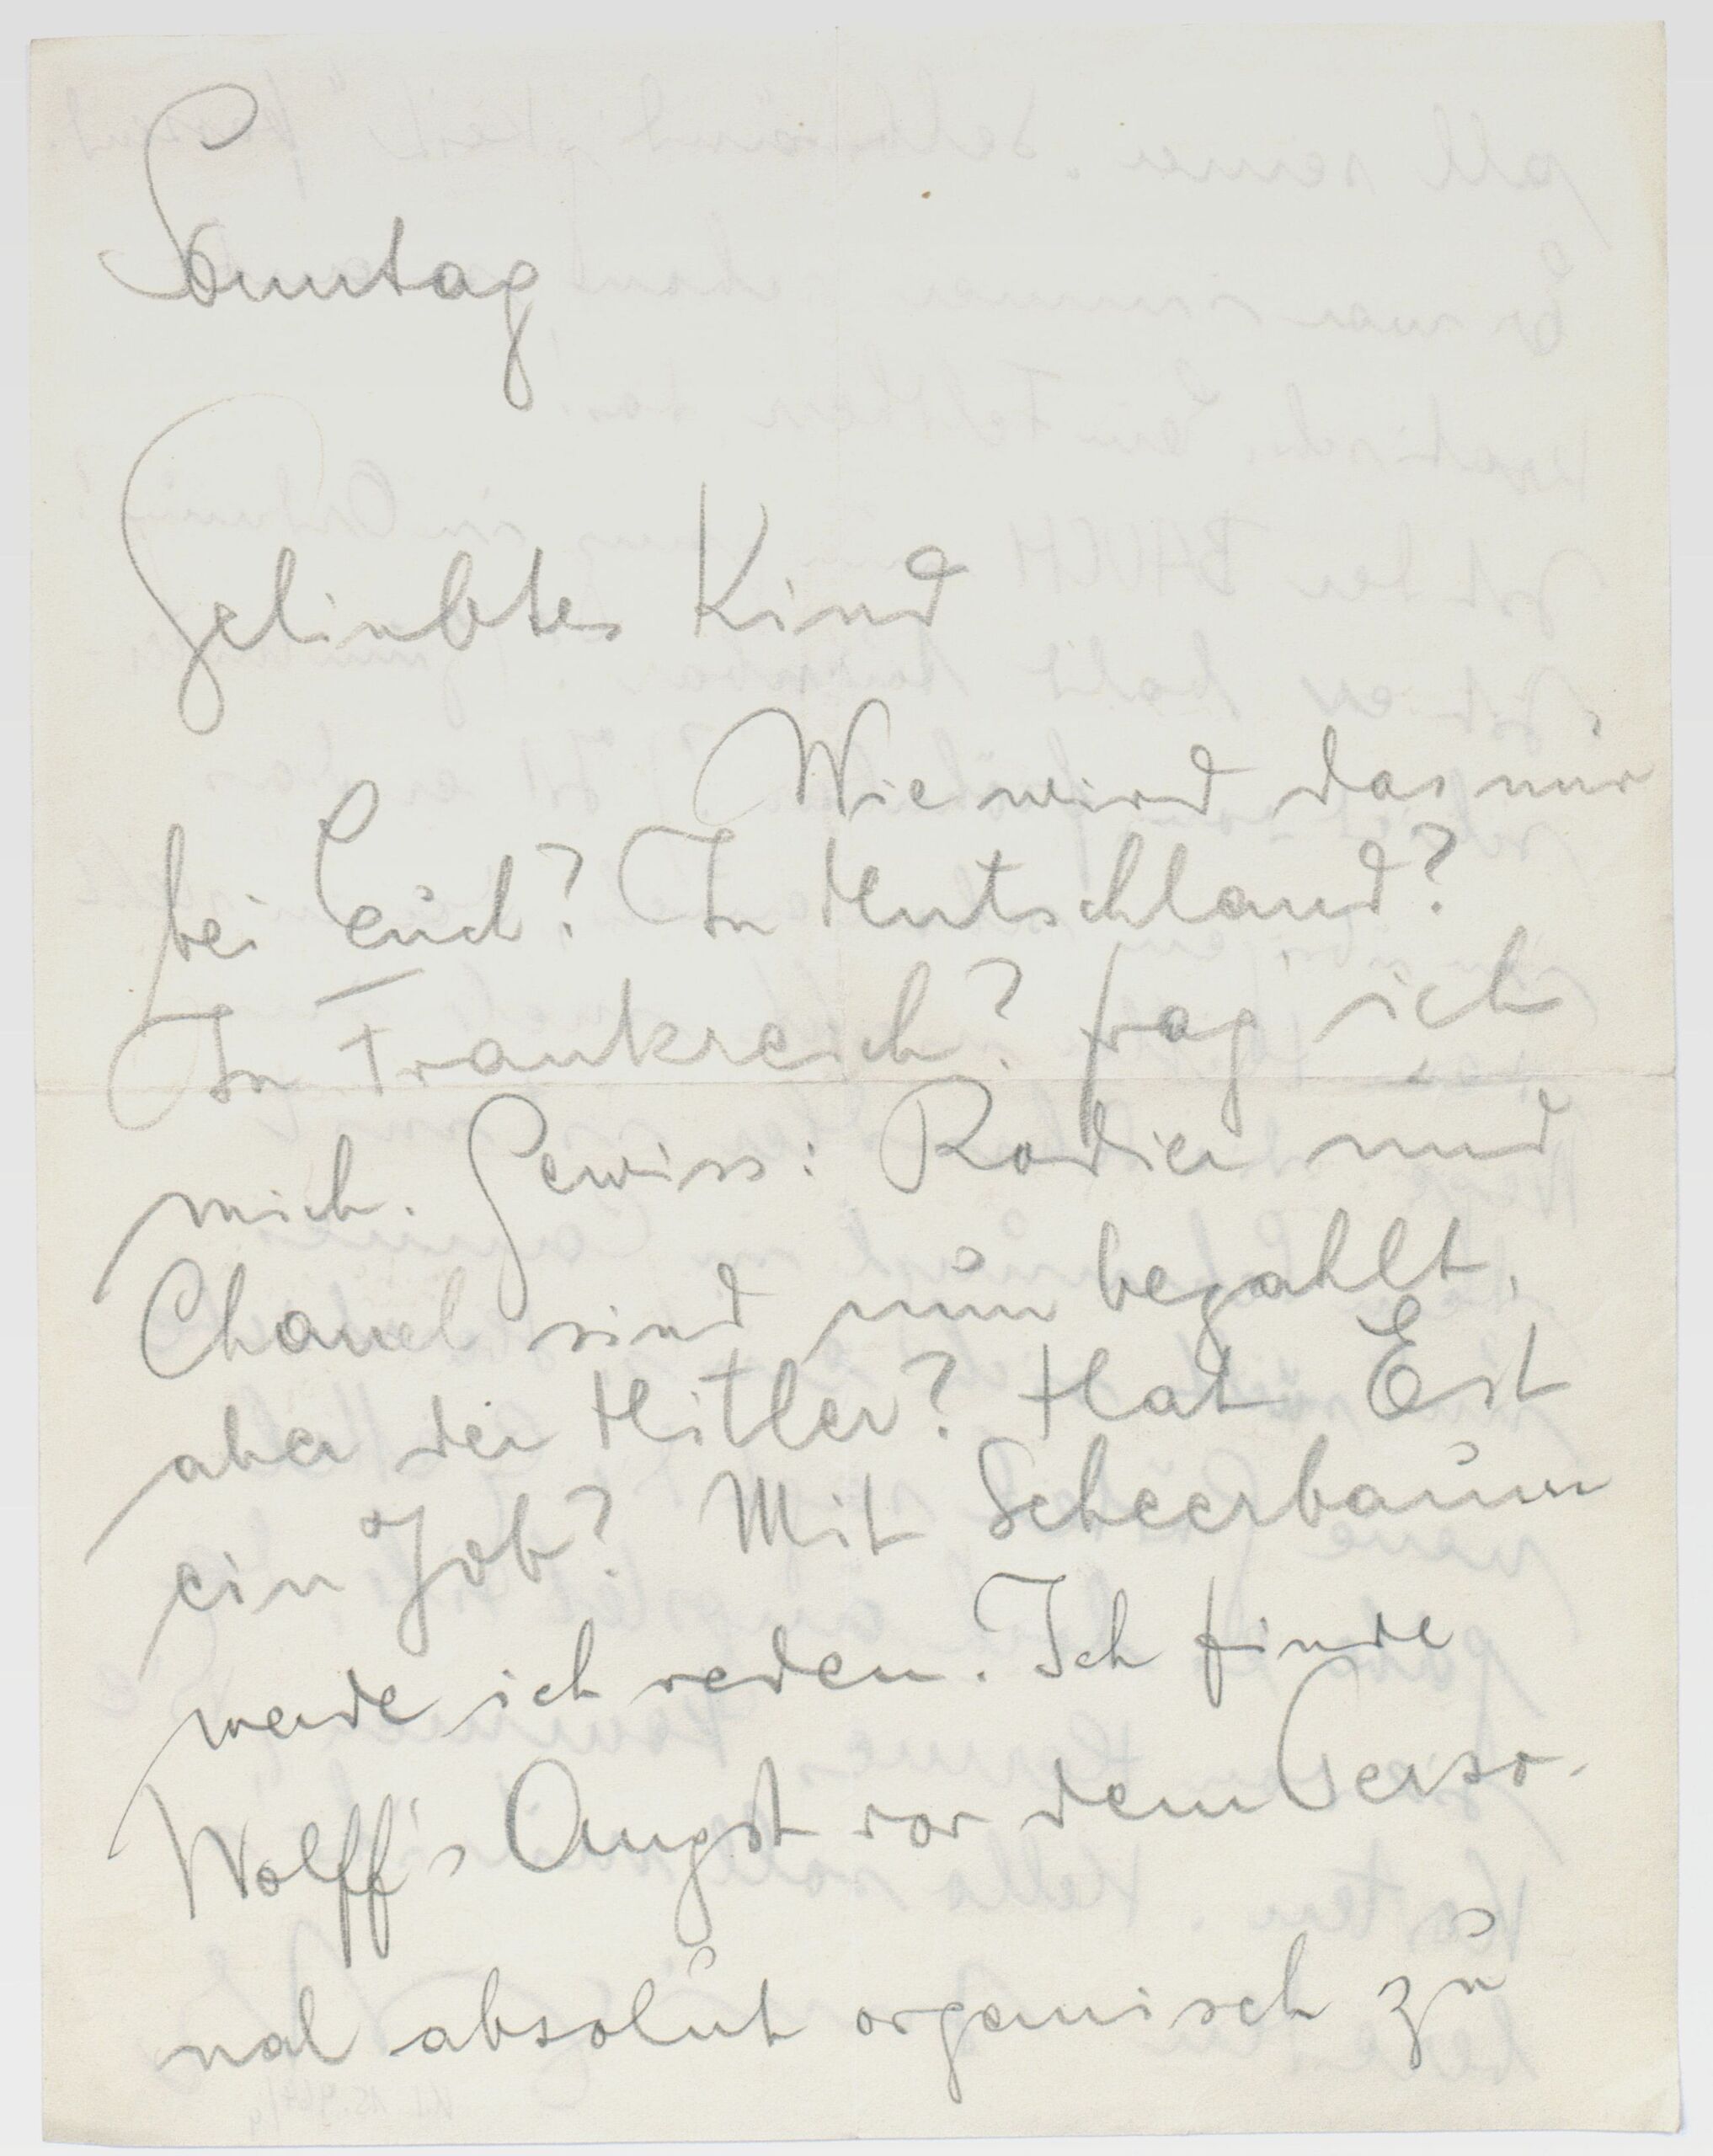 Sonntag
Geliebtes Kind
Wie wird das nur
bei Euch? In Deutschland?
In Frankreich? frag ich
mich. Gewiss: Rodier und
Chanel sind nun bezahlt,
aber der Hitler? Hat Est
ein Job? Mit Scheerbaum
werde ich reden. Ich finde
Wolff's Angst vor dem Perso-
nal absolut organisch zu